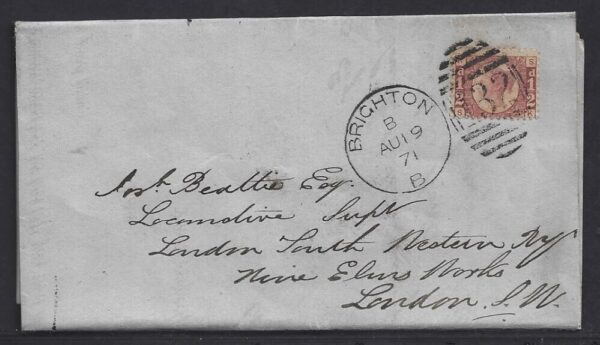 BRIGHTON
B
AU 19
71
B
132
S
½ d
½ d
Josh Beattie Esq.
Locomotive Supt
London South Western Ry
Nine Elms Works
London. S.W.